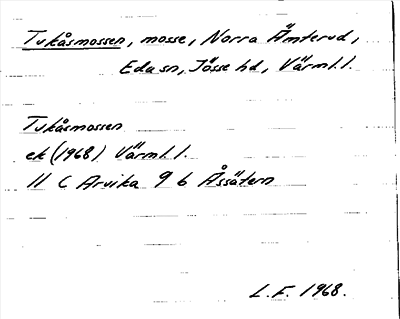 Tvkåsmossen, mosse, Norra Ämterud,
Eda sn, Jösse hd, Värml. l.
Tvkåsmossen
ek (1968) Värml. l.
11 C Arvika 9 b Åssätern
L.F. 1968.